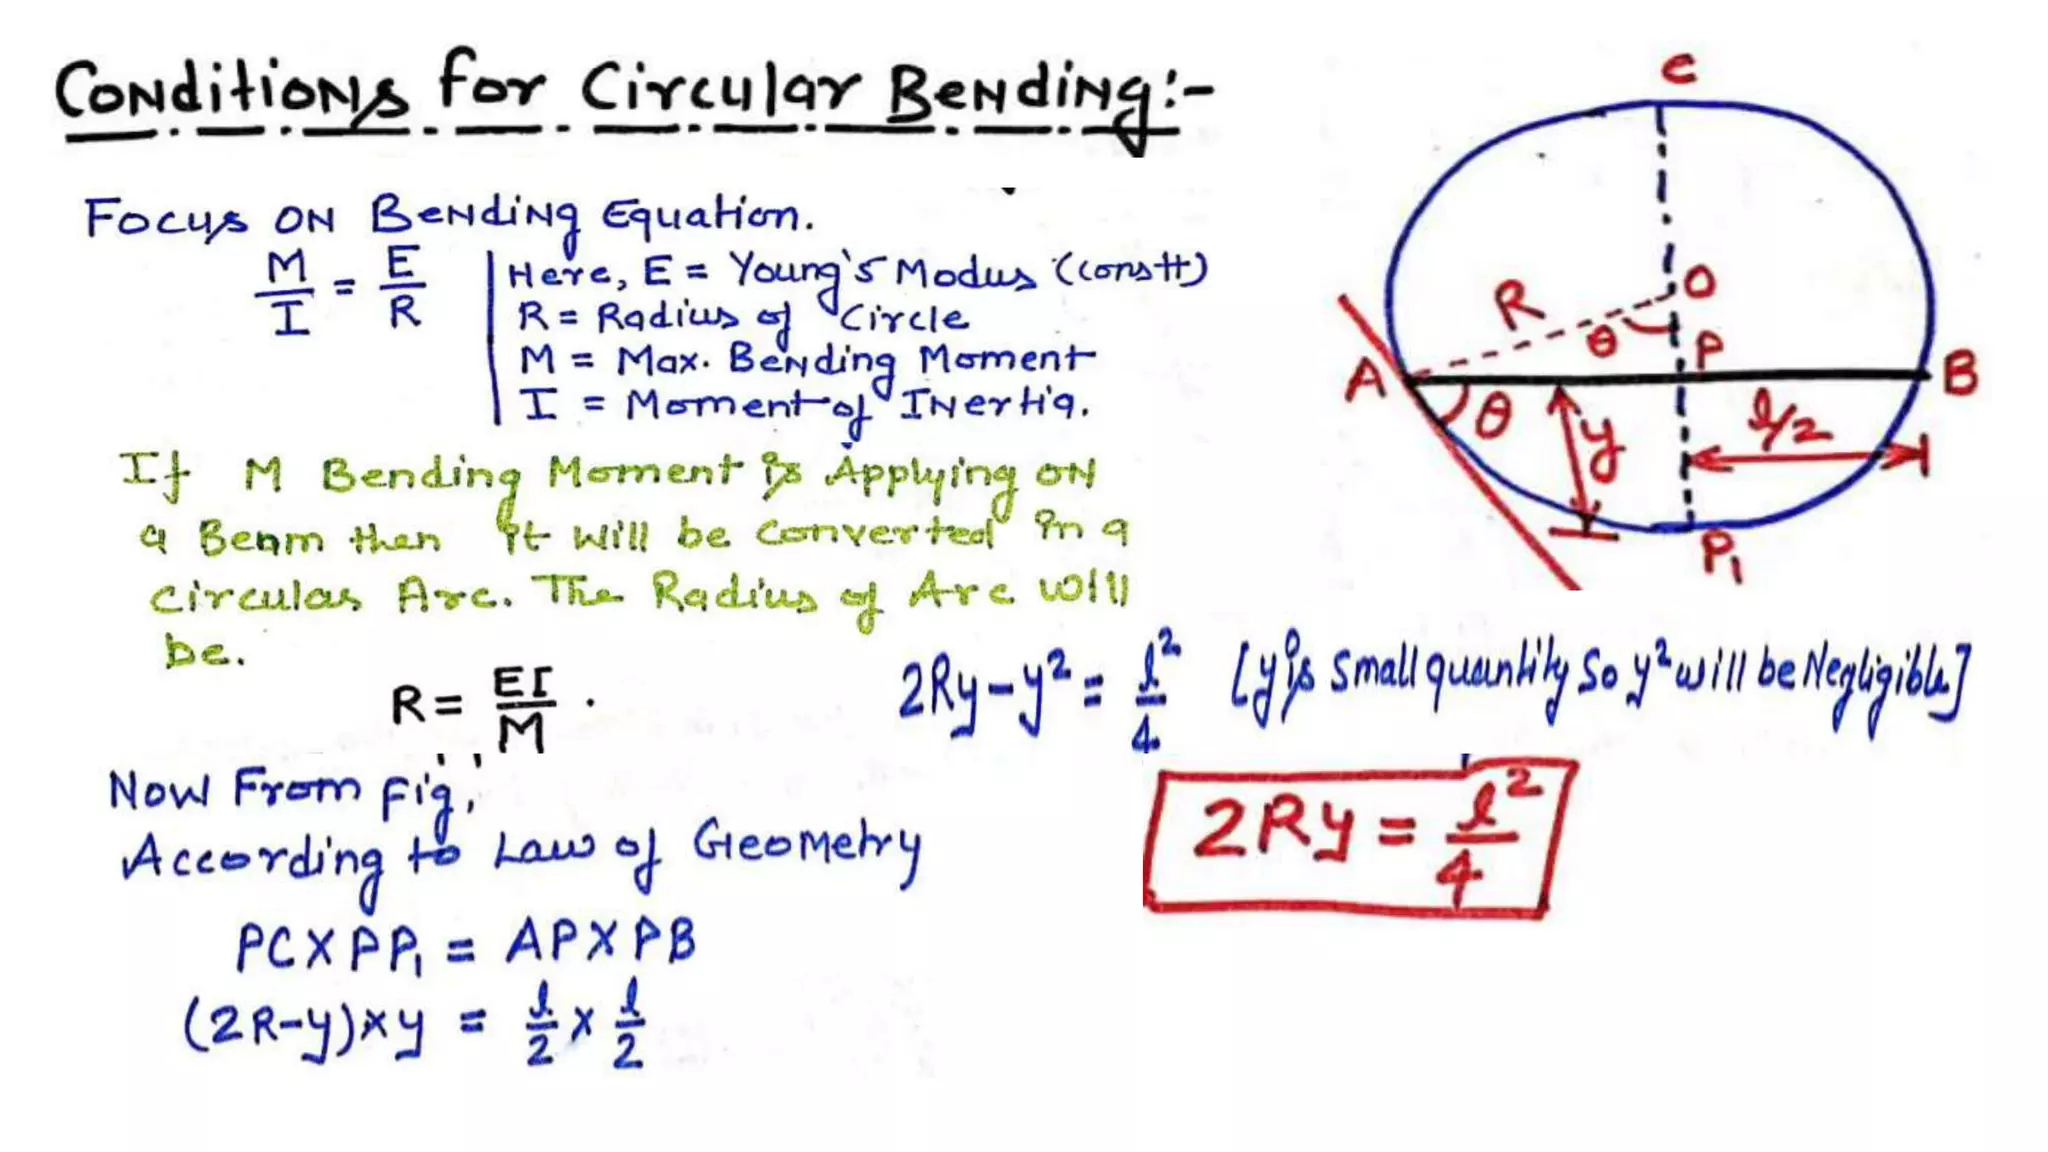 Conditions for Circular Bending:-
Focus on Bending Equation.
M/I = E/R
Here, E = Young's Modus (constt)
R = Radius of Circle
M = Max. Bending Moment
I = Moment of Inertia.
If M Bending Moment is Applying on
a Beam then it will be converted in a
circular Arc. The Radius of Arc will
be.
R = EI/M .
Now From fig,
According to Law of Geometry
PC X PP₁ = AP X PB
(2R-y) x y = l/2 x l/2
C
O
R
θ
P
A
B
θ
y
l/2
P₁
2Ry - y² = l²/4 [y is small quantity so y² will be Negligible]
2Ry = l²/4